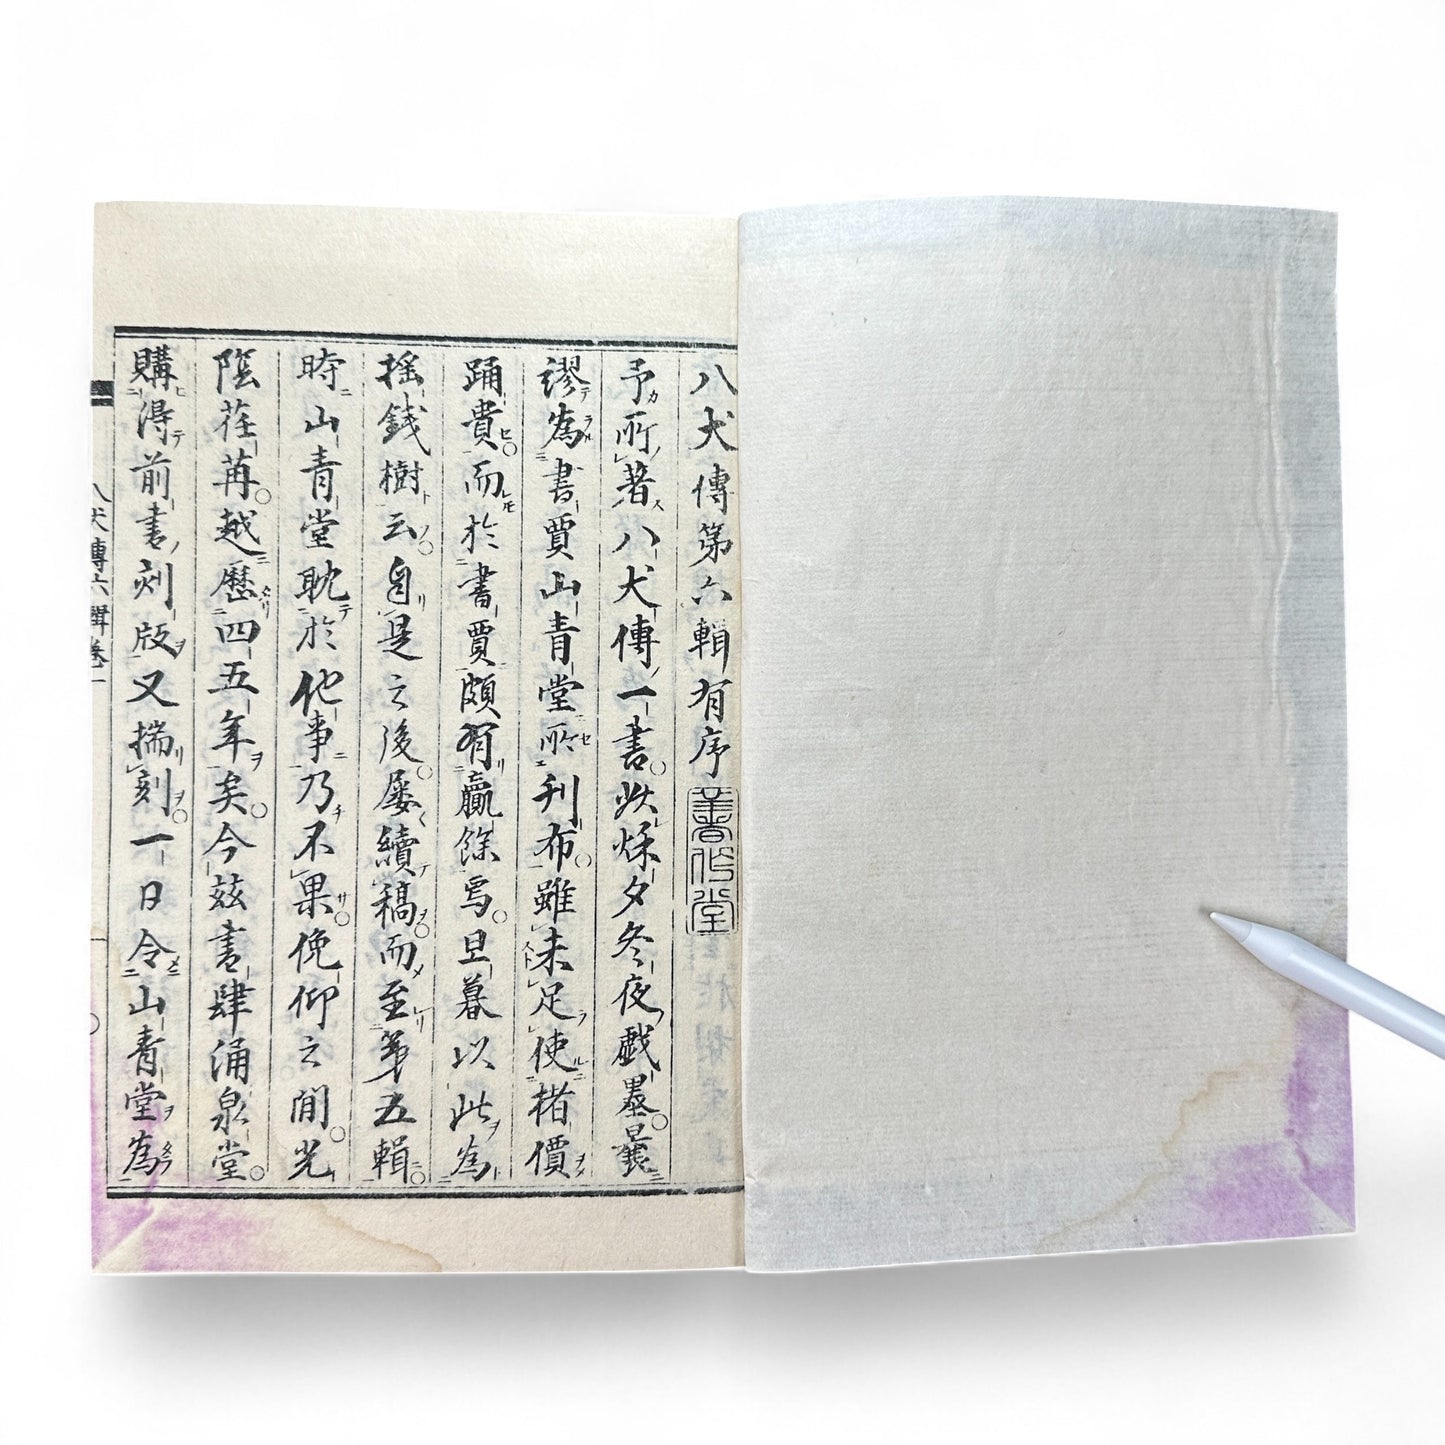 八犬傳第六輯有序 著作堂
予所著八犬傳一書此秌夕冬夜戲墨曩
謬爲書賈山青堂所刊布雖未足使楮價
踊貴而於書賈頗有贏餘焉旦暮以此爲
搖錢樹云自是之後屡續稿而至第五輯
時山青堂耽於他事乃不果俛仰之間光
陰荏苒越歷四五年矣今玆書肆涌泉堂
購得前書刻版又揣刻一日令山青堂爲
八犬傳六輯卷一